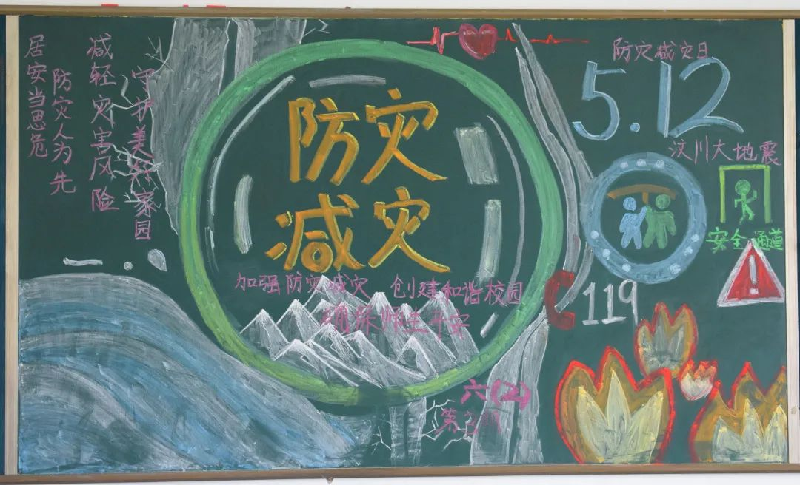 居安当思危
防灾人为先
减轻灾害风险
守护美好家园
防灾
减灾
加强防灾减灾 创建和谐校园
六(2)
防灾减灾日
5.12
汶川大地震
安全通道
119